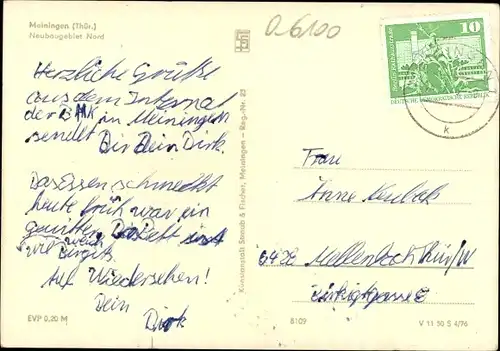 Meiningen (Thür.)
Neubaugebiet Nord
0.6100
10
DEUTSCHE DEMOKRATISCHE REPUBLIK
k
Herzliche Grüße
aus dem Internat
der BMK in Meiningen
sendet
Dir Dein Dirk.
Das Essen schmeckt
heute früh war ein
Auf Wiedersehen!
Dein
Dirk
Kunstanstalt Straub & Fischer, Meiningen - Reg.-Nr. 23
Frau
Änne
6428 Mellenbach Thür/W
EVP 0,20 M
8109
V 11 50 S 4/76